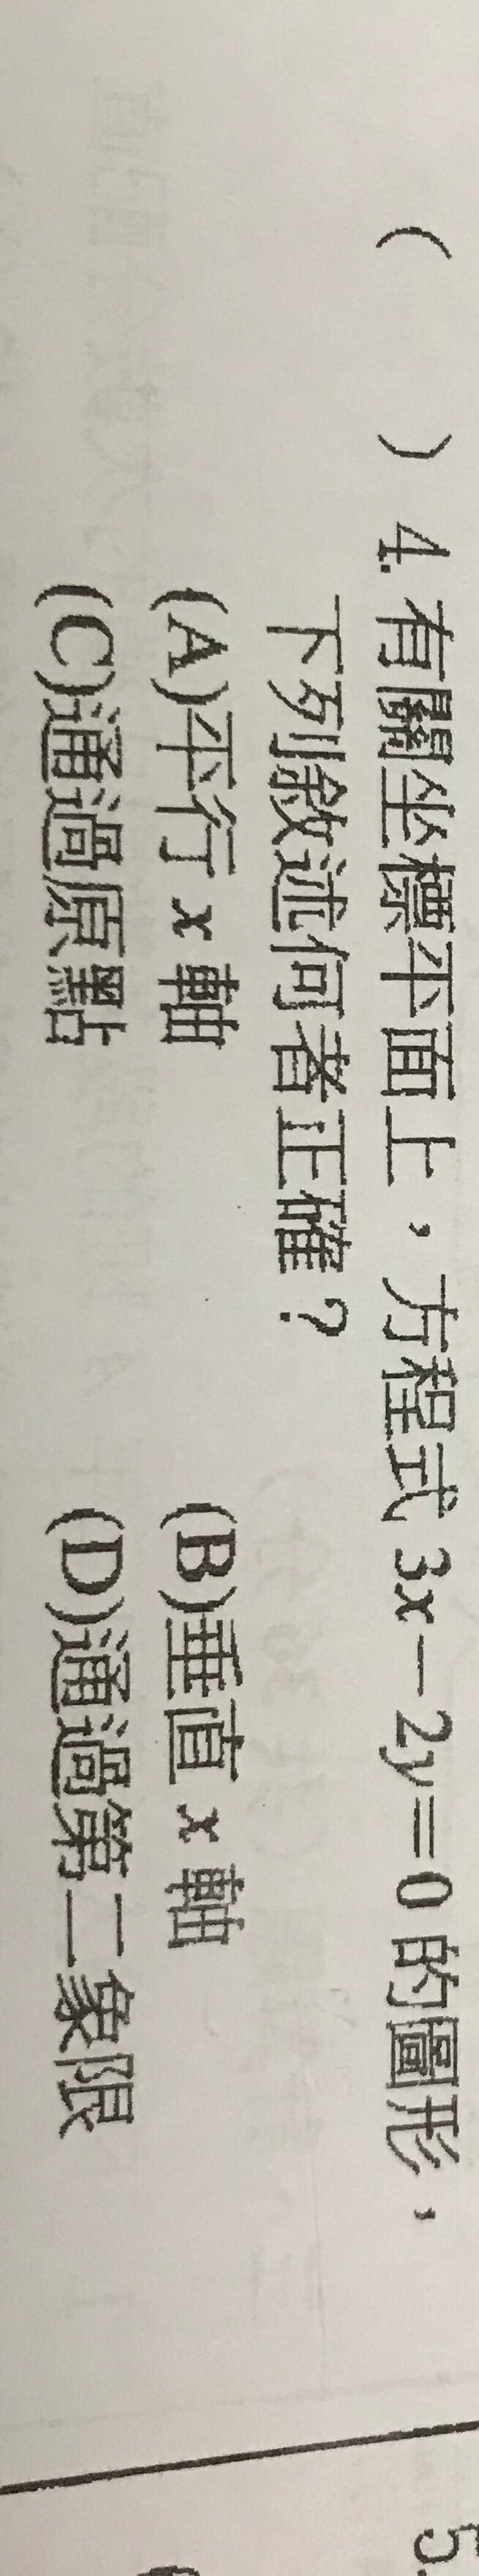 (　　) 4. 有關坐標平面上，方程式 3x－2y＝0 的圖形，
下列敘述何者正確？
(A)平行 x 軸　　(B)垂直 x 軸
(C)通過原點　　(D)通過第二象限
5.